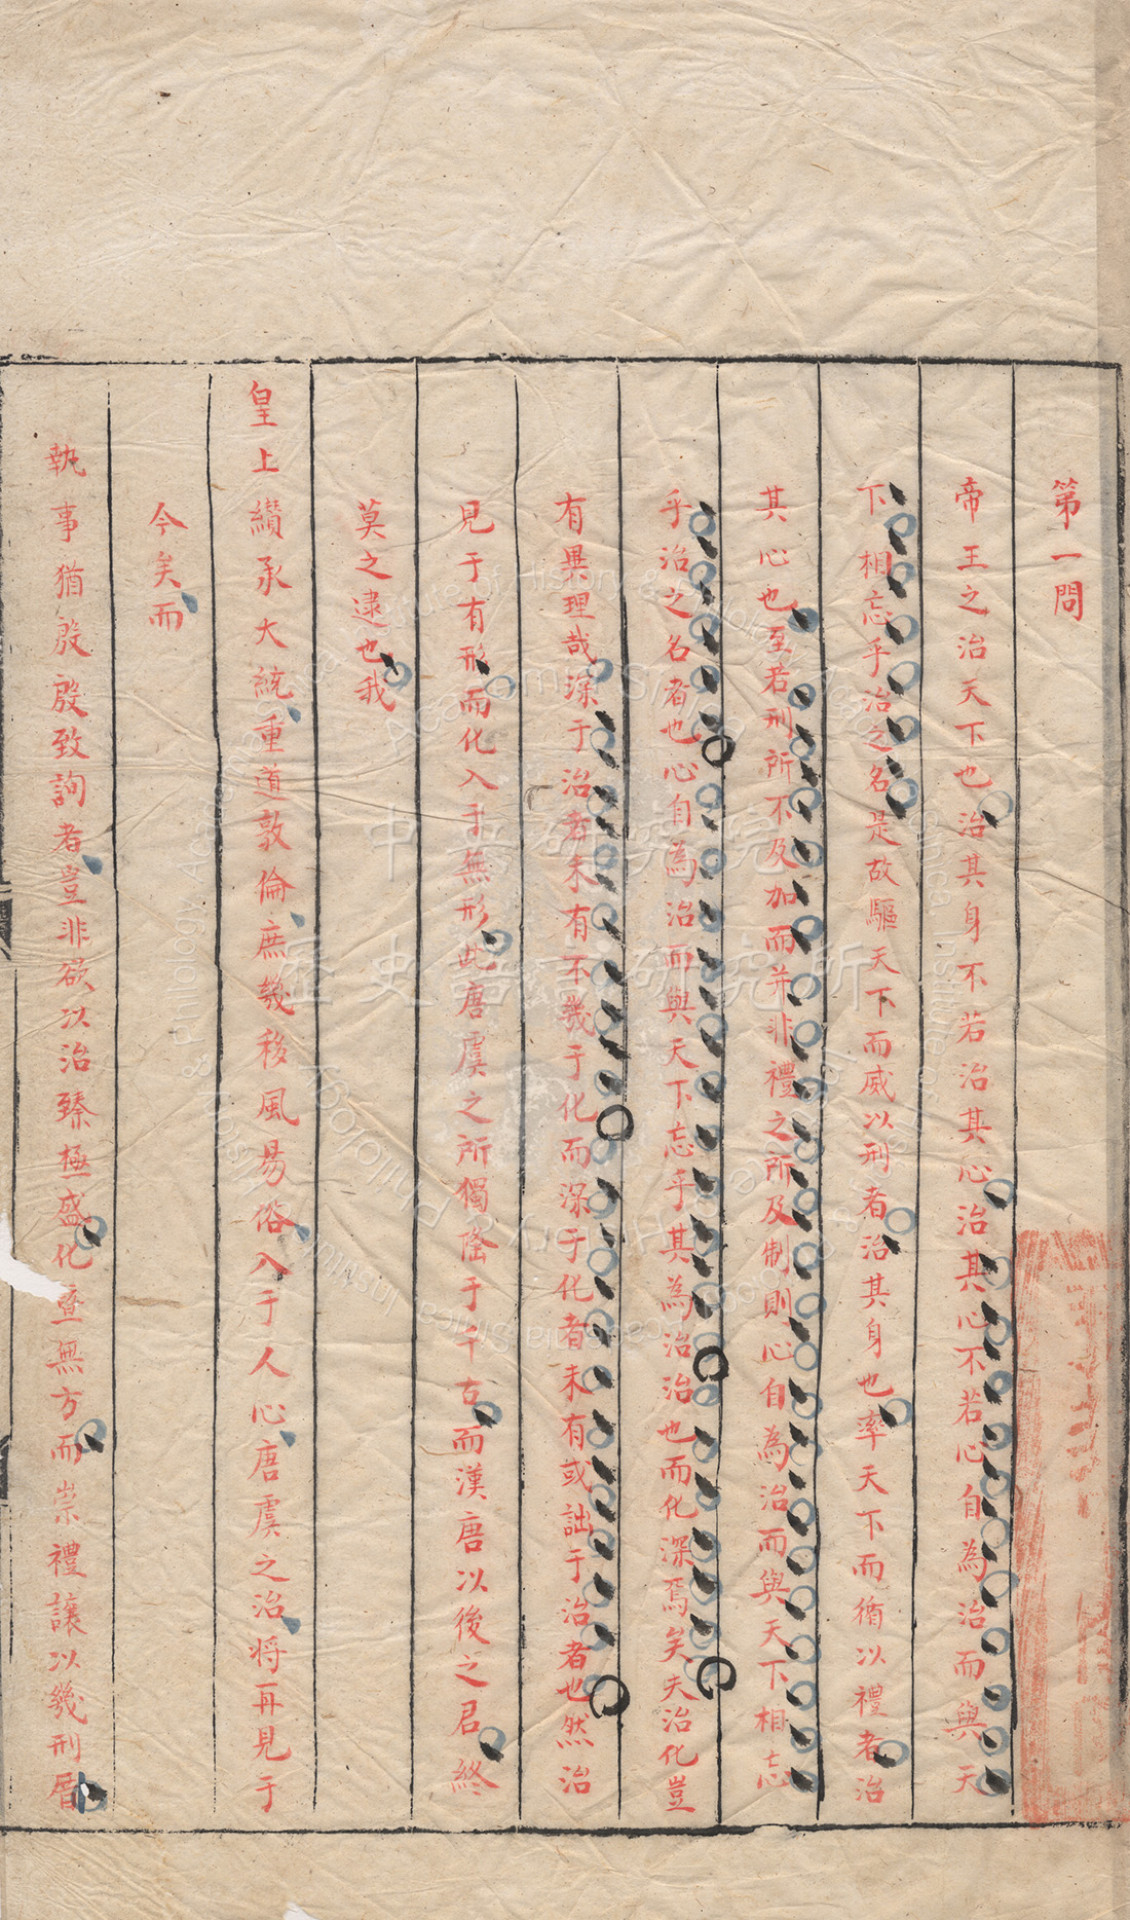 第一問
帝王之治天下也治其身不若治其心治其心不若心自為治而與天
下相忘乎治之名是故驅天下而威以刑者治其身也率天下而循以禮者治
其心也至若刑所不及加而并非禮之所及制則心自為治而與天下相忘
乎治之名者也心自為治而與天下忘乎其為治治也而化深焉矣夫治化豈
有異理哉深于治者未有不幾于化而深于化者未有或詘于治者也然治
見于有形而化入于無形此唐虞之所獨隆于千古而漢唐以後之君終
莫之逮也我
皇上纘承大統重道敦倫庶幾移風易俗入于人心唐虞之治將再見于
今矣而
執事猶殷殷致詢者豈非欲以治臻極盛化壹無方而崇禮讓以幾刑厝
中央研究院
歷史語言研究所